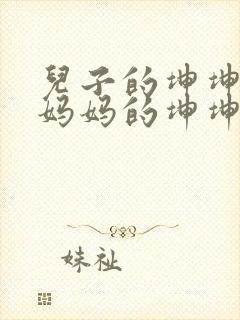 兒子的坤坤
妈妈的坤坤
妹祉